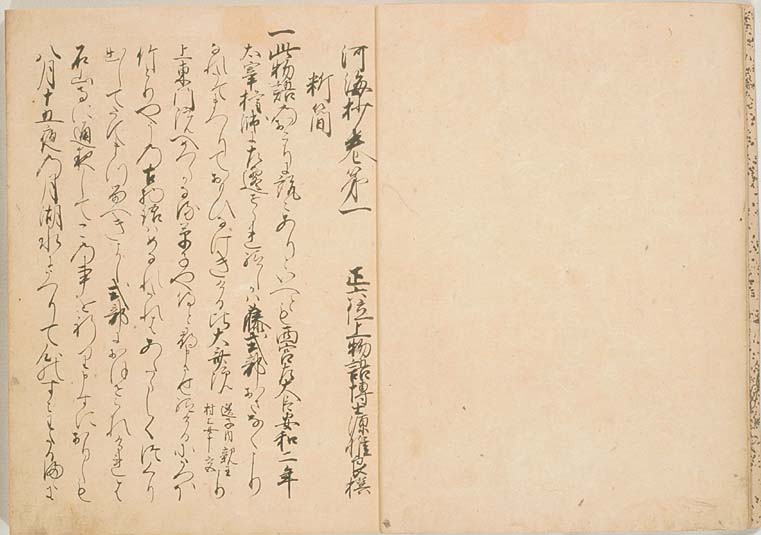 河海抄巻第一　正六位上物語博士源惟良撰
料簡
一此物語のおこりに説々ありといへとも西宮左大臣安和二年
太宰権帥に左遷せられ給しかは藤式部おさなくより
なれたてまつりておもひなけきける比大斎院 選子内親王 村上女十宮 より
上東門院へめつらかなる草子や侍ると尋申させ給けるにうつほ
竹とりやうの古物語はめなれたれはあたらしくつくり
出してたてまつるへきよし式部におほせられけれは
石山寺に通夜してこの事を祈申すにおりしも
八月十五夜の月湖水にうつりて心のすみわたるまゝに